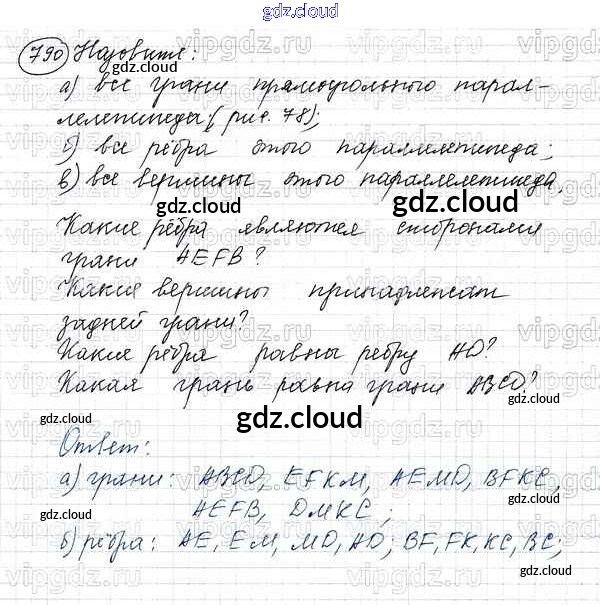 gdz.cloud
790 Назовите:
а) все грани прямоугольного парал-
лелепипеда (рис. 78);
б) все рёбра этого параллелепипеда;
в) все вершины этого параллелепипеда.
Какие рёбра являются сторонами
грани AEFB?
Какие вершины принадлежат
задней грани?
Какие рёбра равны ребру AD?
Какая грань равна грани ABCD?
Ответ:
а) грани: ABCD, EFKM, AEMD, BFKC,
AEFB, DMKC;
б) рёбра: AE, EM, MD, AD; BF, FK, KC, BC;